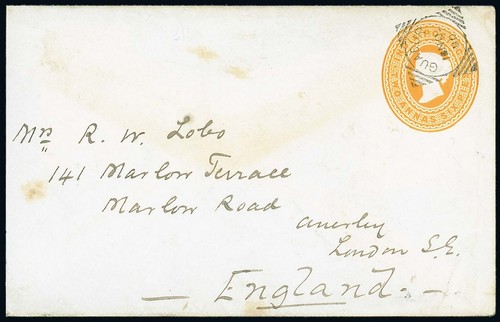 Mrs R. W. Lobo
141 Marlow Terrace
Marlow Road
Anerley
London S.E.
England
TWO ANNAS SIX PIES